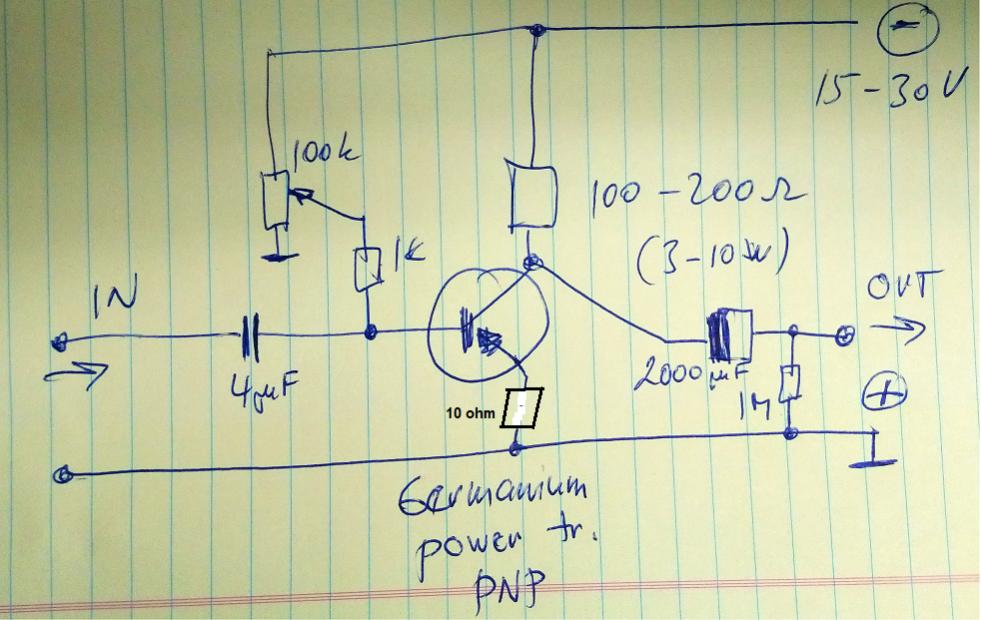 −
15-30V
100k
100-200Ω
(3-10W)
1K
IN
OUT
4µF
2000µF
1M
+
10 ohm
Germanium
power tr.
PNP